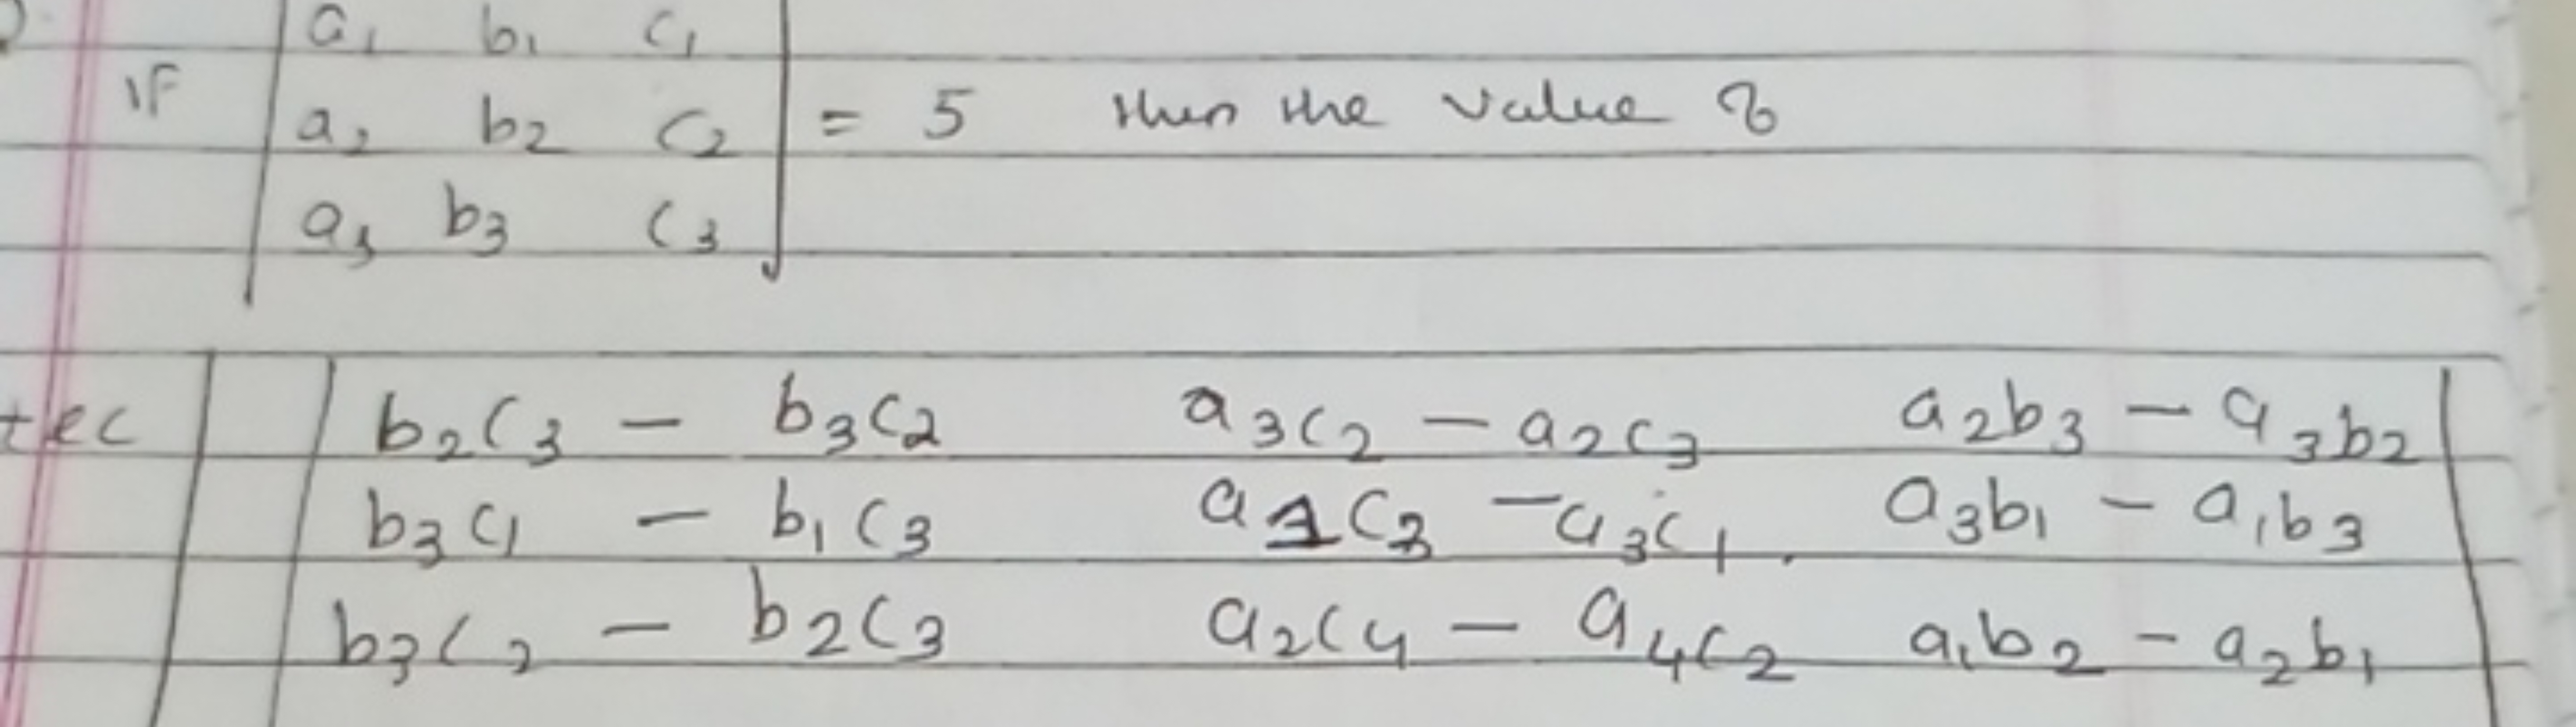 a₁ b₁ c₁
IF a₂ b₂ c₂ = 5 then the value of
a₃ b₃ c₃
b₂c₃ - b₃c₂ a₃c₂ - a₂c₃ a₂b₃ - a₃b₂
b₃c₁ - b₁c₃ a₁c₃ - a₃c₁ a₃b₁ - a₁b₃
b₃c₂ - b₂c₃ a₂c₄ - a₄c₂ a₁b₂ - a₂b₁